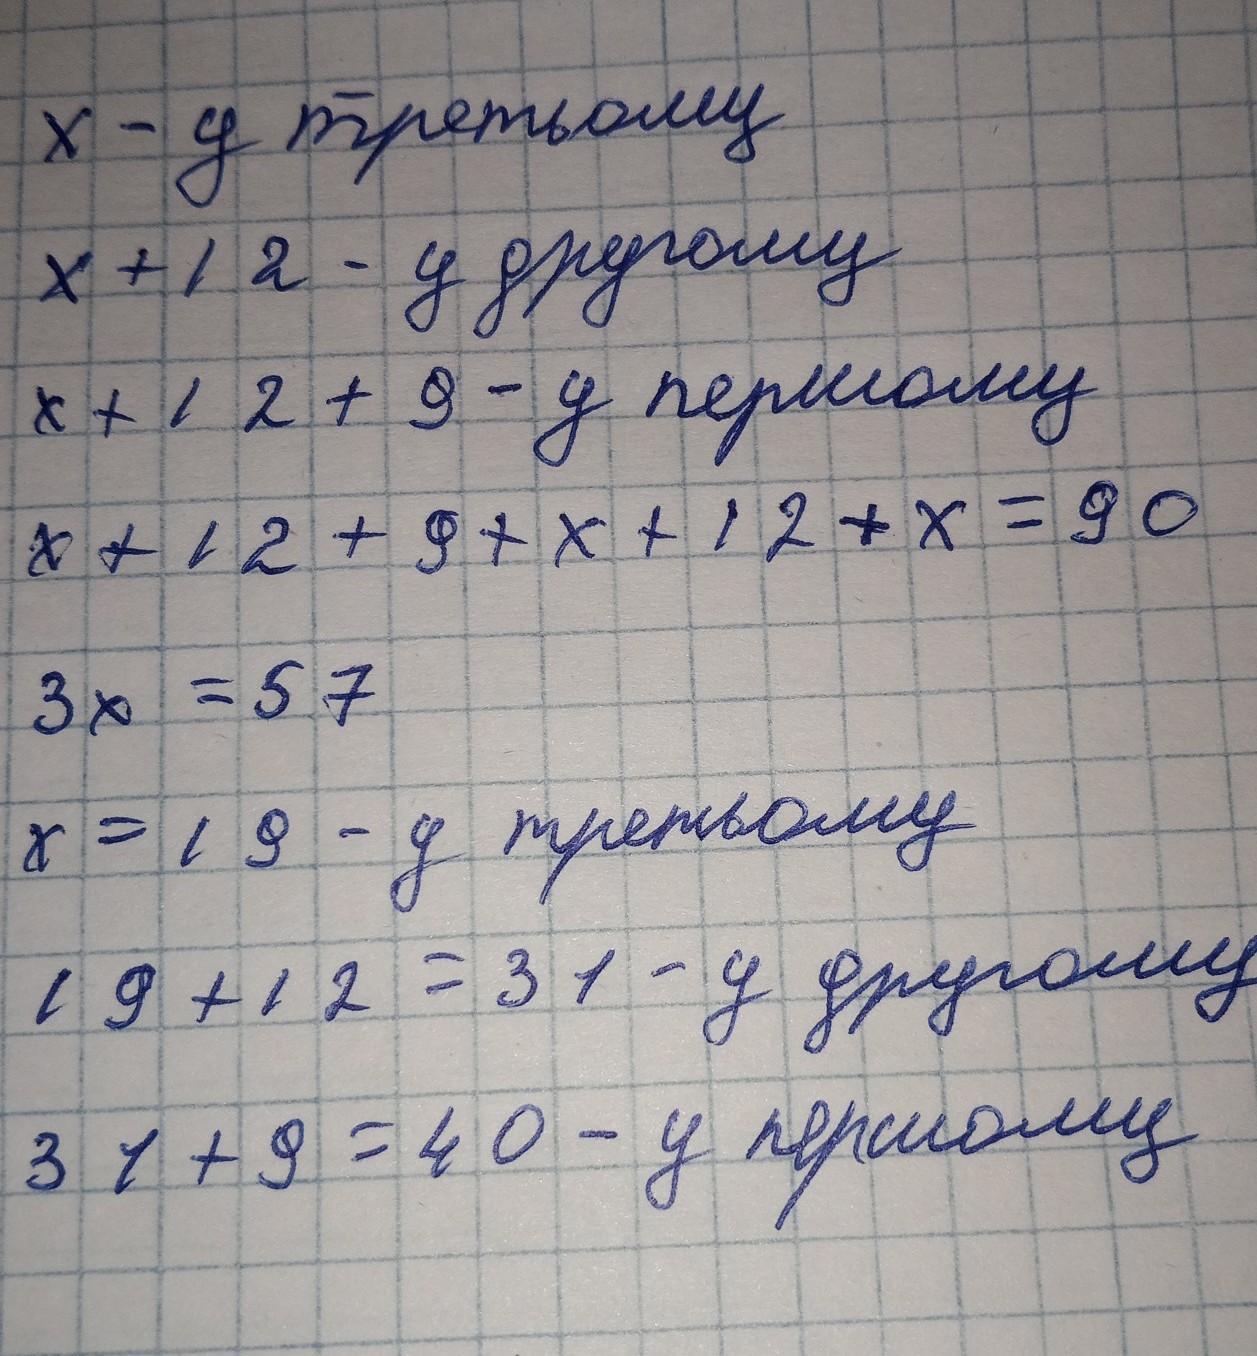 x - у третьому
x + 12 - у другому
x + 12 + 9 - у першому
x + 12 + 9 + x + 12 + x = 90
3x = 57
x = 19 - у третьому
19 + 12 = 31 - у другому
31 + 9 = 40 - у першому